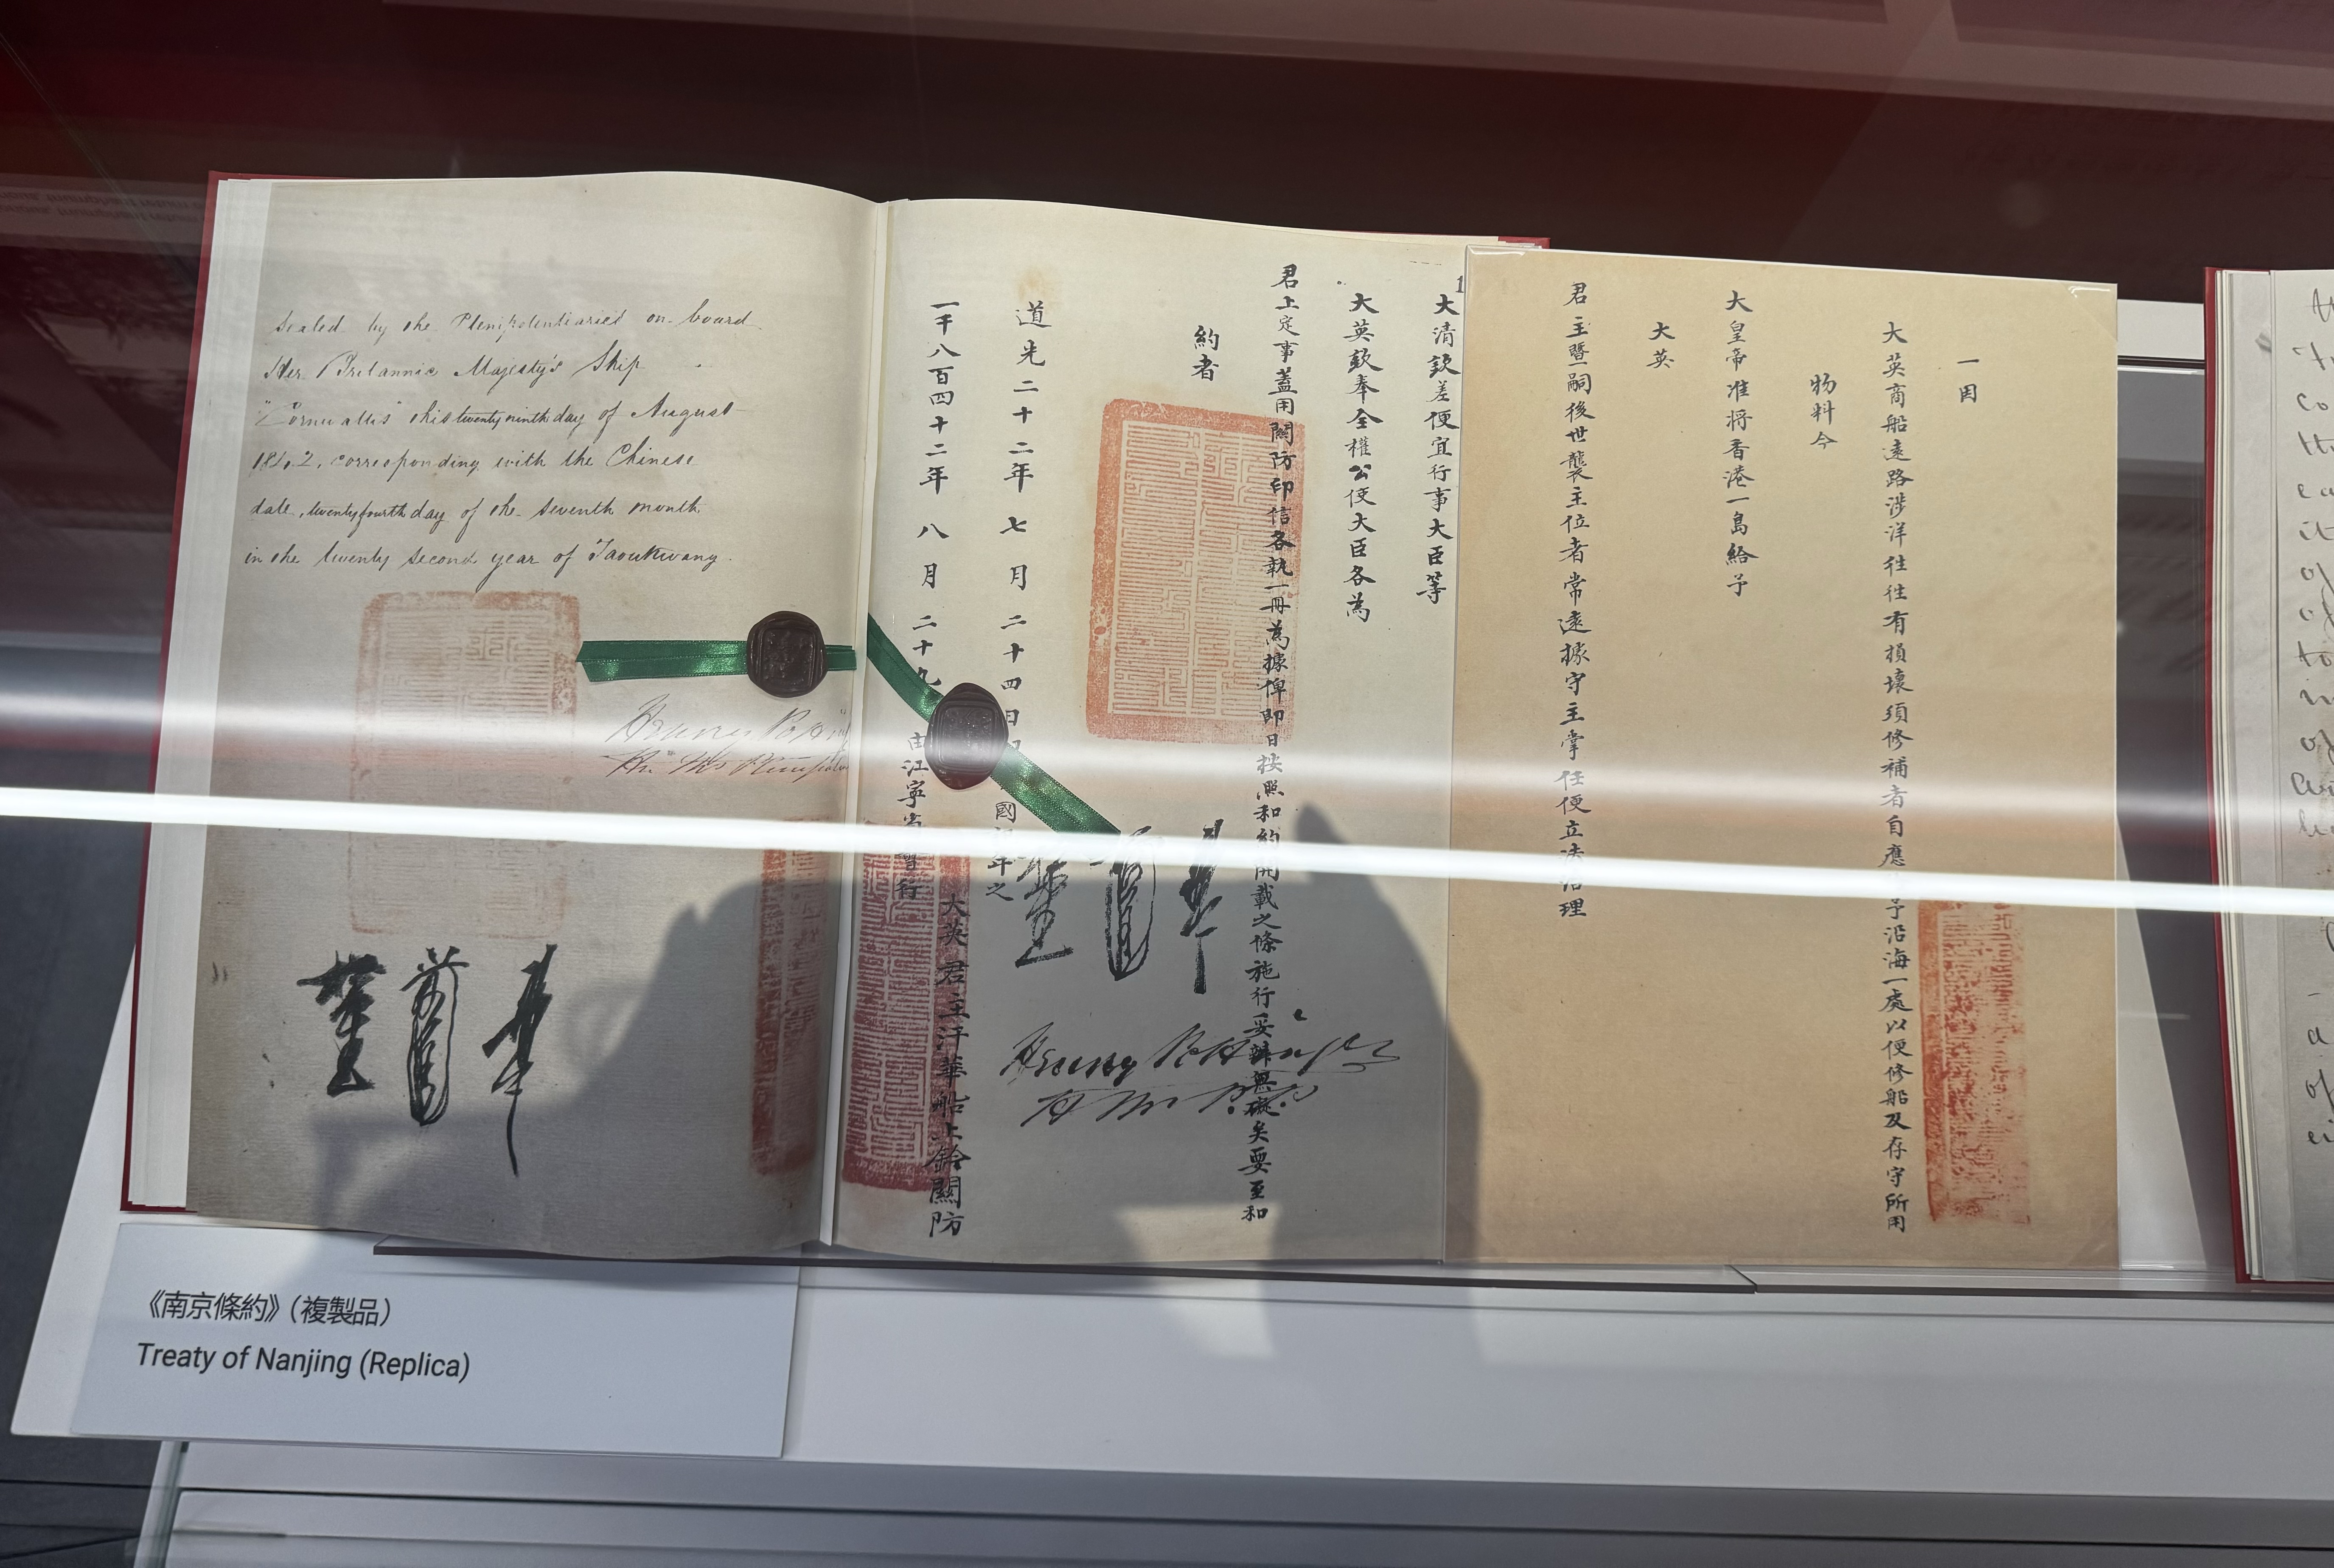 Sealed by the Plenipotentiaries on board
Her Britannic Majesty's Ship
"Cornwallis" this twenty ninth day of August
1842, corresponding with the Chinese
date, twenty fourth day of the seventh month
in the twenty second year of Taoukwang.
Henry Potti
一因
大英商船遠路涉洋往往有損壞須修補者自應予沿海一處以便修船及存守所用
物料今
大皇帝准將香港一島給予
大英
君主暨嗣後世襲主位者常遠據守主掌任便立法治理
大清欽差便宜行事大臣等
大英欽奉全權公使大臣各為
君上定事蓋用關防印信各執一冊為據俾即日按照和約開載之條施行妥辦無礙矣要至和
約者
道光二十二年七月二十四日 國 年之
一千八百四十二年八月二十九 由江寧省 行
大英君主汗華船上鈐關防
Henry Pottinger
《南京條約》(複製品)
Treaty of Nanjing (Replica)